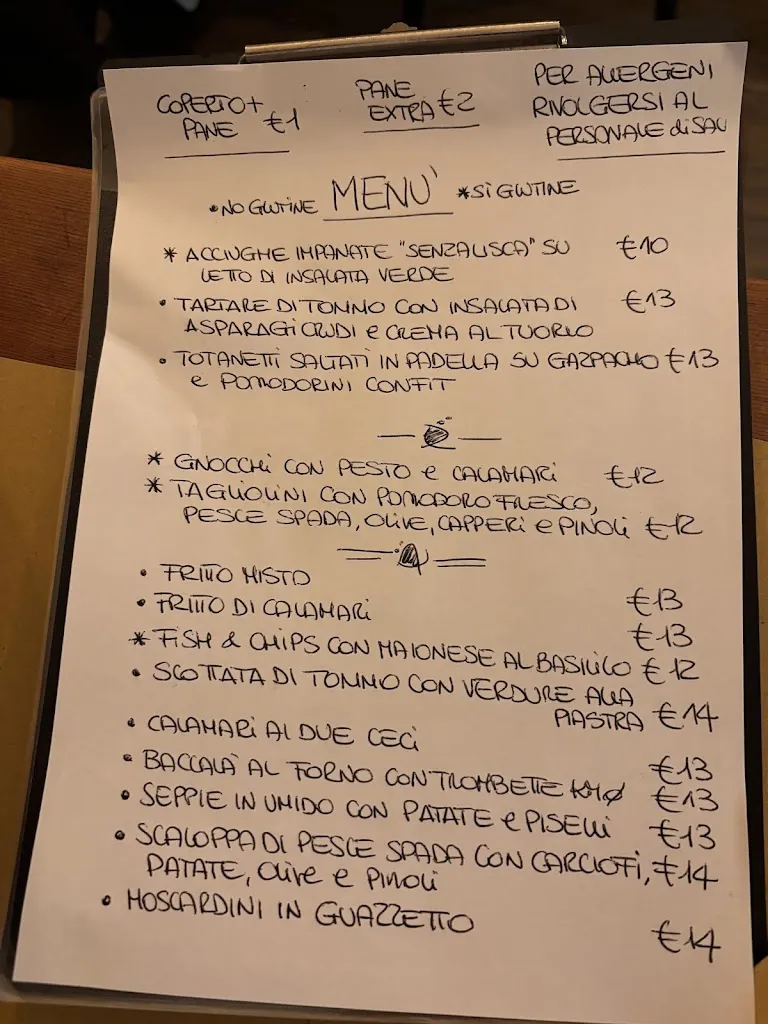 COPERTO +
PANE €1
PANE
EXTRA €2
PER ALLERGENI
RIVOLGERSI AL
PERSONALE di SALA
• NO GLUTINE MENU' * SÌ GLUTINE
* ACCIUGHE IMPANATE "SENZALISCA" SU €10
LETTO DI INSALATA VERDE
• TARTARE DI TONNO CON INSALATA DI €13
ASPARAGI CRUDI e CREMA AL TUORLO
• TOTANETTI SALTATI IN PADELLA SU GAZPACHO €13
e POMODORINI CONFIT
* GNOCCHi CON PESTO e CALAMARi €12
* TAGLIOLINI CON POMODORO FRESCO,
PESCE SPADA, OLIVE, CAPPERi e PINOLi €12
• FRITTO MISTO €13
• FRITTO DI CALAMARi €13
* FISH & CHIPS CON MAIONESE AL BASILICO €12
• SCOTTATA DI TONNO CON VERDURE ALLA
PIASTRA €14
• CALAMARi AI DUE CECi €13
• BACCALÀ AL FORNO CON TROMBETTE KM0 €13
• SEPPIE IN UMIDO CON PATATE e PISELLi €13
• SCALOPPA DI PESCE SPADA CON CARCIOFi, €14
PATATE, Olive e PiNOLi
• MOSCARDINI IN GUAZZETTO €14